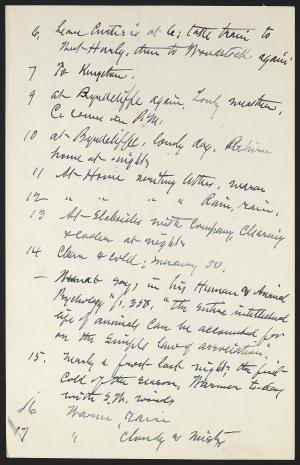 6. Leave Curtis's at 6; take train to
Mt Hardy, then to Woodstock again
7 To Kingston.
9 at Byrdcliffe again, Lovely weather,
C. come in P.M.
10 at Byrdcliffe, lovely day. Return
home at night
11 At Home writing letters, warm
12 " " " " Rain, rain.
13 At Slabsides with company, Clearing
& cooler at night
14 Clear & cold; mercury 50.
— Wundt says in his Human & Animal
Psychology p. 350, "the entire intellectual
life of animals can be accounted for
on the simple law of association".
15. Nearly a frost last night: the first
cold of the season, Warmer to-day
with S.W. winds
16 Warm, rain
17 " Cloudy & misty